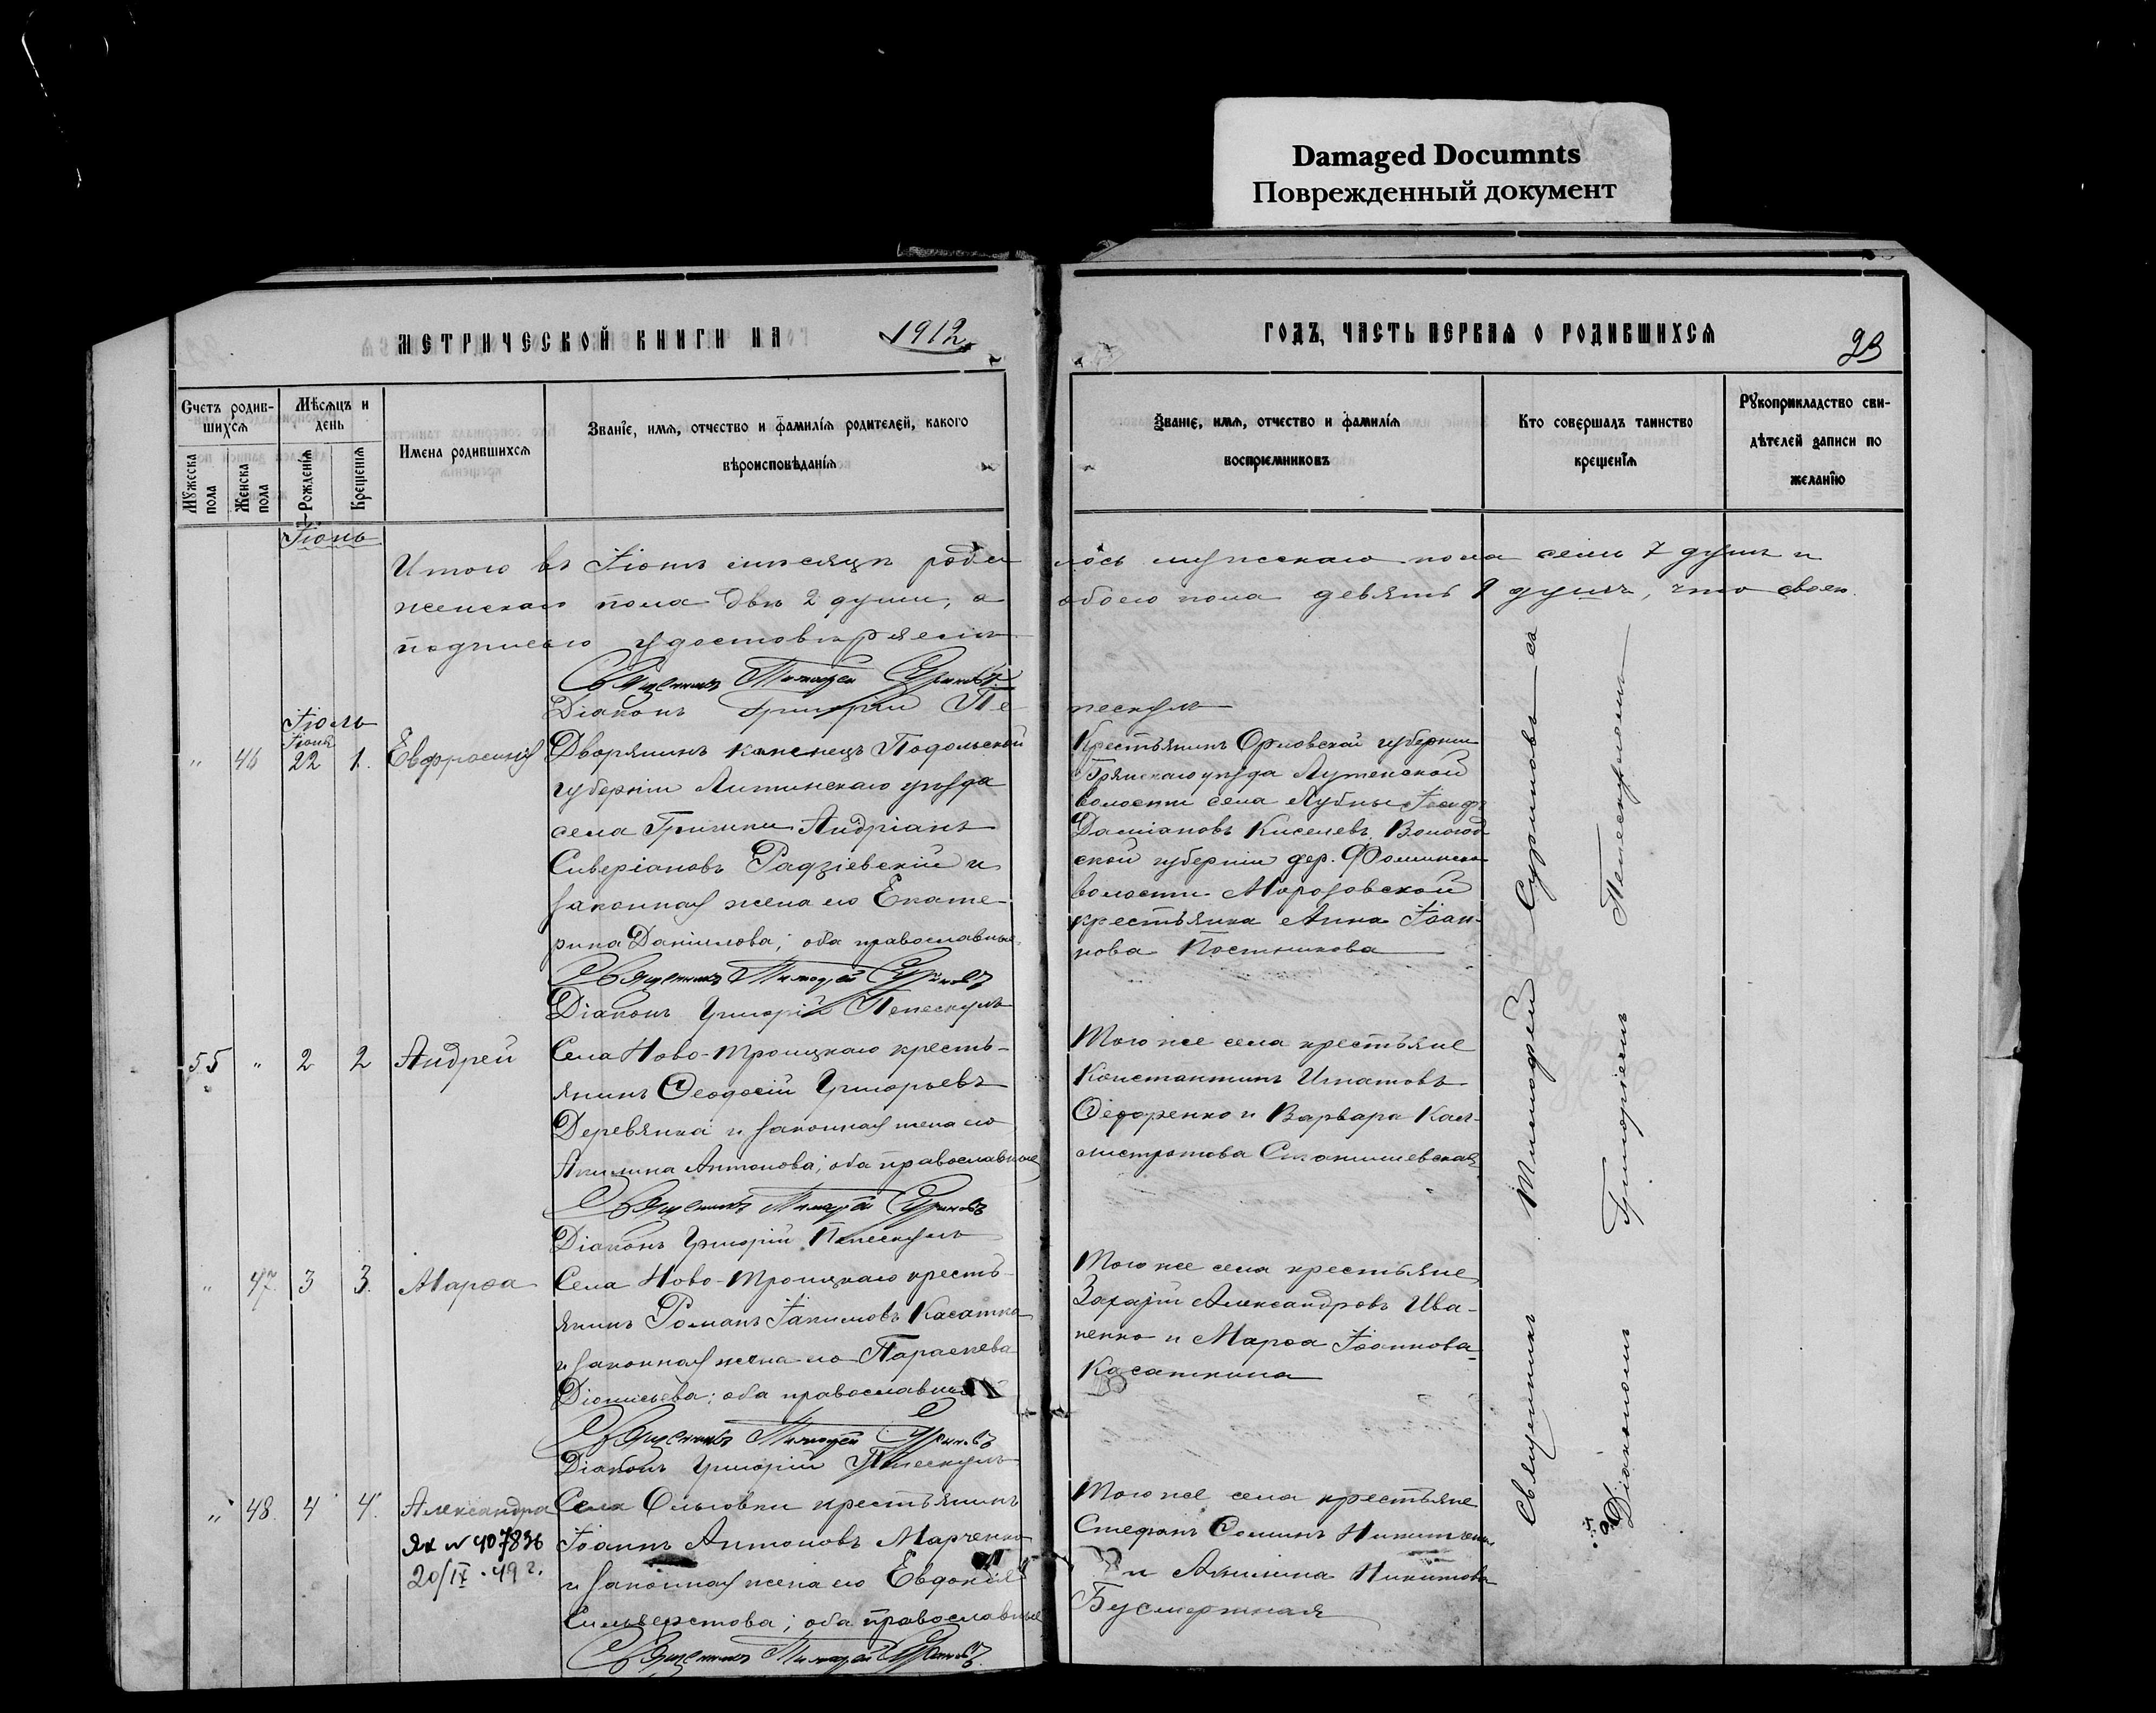 Damaged Documnts
Поврежденный документ
МЕТРИЧЕСКОЙ КНИГИ НА 1912
ГОДЪ, ЧАСТЬ ПЕРВАЯ О РОДИВШИХСЯ
23
Счетъ родив-
шихся
Мужеска пола
Женска пола
Мѣсяцъ и
день
Рожденія
Крещенія
Имена родившихся
Званіе, имя, отчество и фамилія родителей, какого
вѣроисповѣданія
Званіе, имя, отчество и фамилія
воспріемниковъ
Кто совершалъ таинство
крещенія
Рукоприкладство сви-
дѣтелей записи по
желанію
Іюнь
Итого въ Іюнѣ мѣсяцѣ роди
лось мужскаго пола семь 7 душъ и
женскаго пола двѣ 2 души, а
обоего пола девять 9 душъ, что своею
подписью удостовѣряемъ
Священникъ Тимоѳей Суриковъ
Діаконъ Григорій Пе
пескулъ
Іюль
Іюня
" 46 22 1. Евфросинія
Дворянинъ Каменецъ Подольской
губерніи Литинскаго уѣзда
села Гришки Андріанъ
Сиверіановъ Радзіевскій и
законная жена его Екате-
рина Даніилова; оба православные.
Священникъ Тимоѳей Суриковъ
Діаконъ Григорій Пепескулъ
Крестьянинъ Орловской губерніи
Брянскаго уѣзда Лутенской
волости села Лубны Іосифъ
Даміановъ Киселевъ. Вологод
ской губерніи дер. Фоминско
волости Морозовской
крестьянка Анна Іоан-
нова Постникова
55 " 2 2 Андрей
Села Ново-Троицкаго кресть-
янинъ Ѳеодосій Григорьевъ
Деревянка и законная жена его
Акилина Антонова; оба православные
Священникъ Тимоѳей Суриковъ
Діаконъ Григорій Пепескулъ
Того же села крестьяне
Константинъ Игнатовъ
Ѳедоренко и Варвара Кал-
листратова Станишевская
" 47. 3 3. Марѳа
Села Ново-Троицкаго кресть-
янинъ Романъ Іакимовъ Касатка
и законная жена его Параскева
Діонисьева; оба православные
Священникъ Тимоѳей Суриковъ
Діаконъ Григорій Пепескулъ
Того же села крестьяне
Захарій Александровъ Ива-
ненко и Марѳа Іоаннова
Касаткина
" 48. 4 4. Александра
Ях № 407836
20/IX.49 г.
Села Ольговки крестьянинъ
Іоаннъ Антоновъ Марченко
и законная жена его Евдокія
Сильверстова; оба православные
Священникъ Тимоѳей Суриковъ.
Того же села крестьяне
Стефанъ Ѳоминъ Никитченко
и Акилина Никитова
Бусмертная
Священникъ Тимоѳей Суриковъ съ
Діакономъ Григоріемъ Пепескуломъ